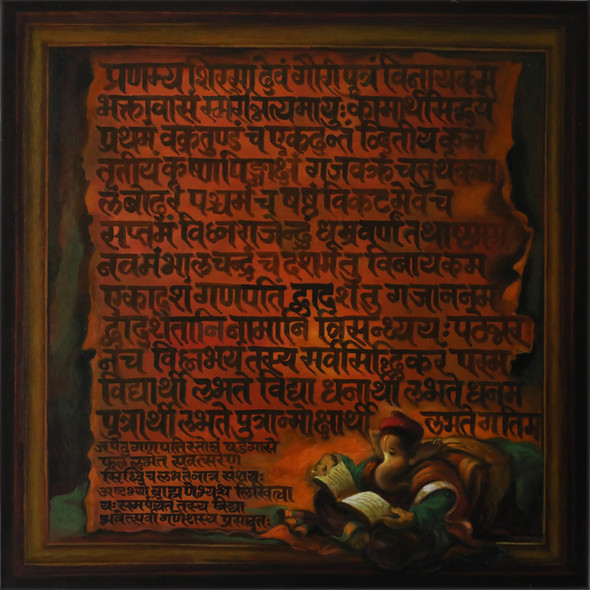 प्रणम्य शिरसा देवं गौरी पुत्रं विनायकम
भक्तावासं स्मरेन्नित्यमायुःकामार्थसिद्धये
प्रथमं वक्रतुण्डं च एकदन्त द्वितीयकम
तृतीयं कृष्णपिङ्गाक्षं गजवक्रं चतुर्थकम
लंबोदरं पञ्चमं च षष्ठं विकटमेव च
सप्तमं विघ्नराजेन्द्र धुम्रवर्णं तथाष्टमम
नवमंभालचन्द्रं च दशमंतु विनायकम
एकादशं गणपतिं द्वादशंतु गजाननम
द्वादशैतानि नामानि त्रिसन्ध्ययः पठेन्नर
न च विघ्नभयं तस्य सर्वसिद्धिकरं
विद्यार्थी लभते विद्या धनार्थी लभते धनम
पुत्रार्थी लभते पुत्रान्मोक्षार्थी लभते गतिम
जपेद् गणपतिस्तोत्रं षडमासै
फलं लभेत संवत्सरेण
सिद्धिं च लभते नात्र संशयः
अष्टभ्यो ब्राह्मणेभ्यश्च लिखित्वा
यः समर्पयेत तस्य विद्या
भवेत्सर्वा गणेशस्य प्रसादतः